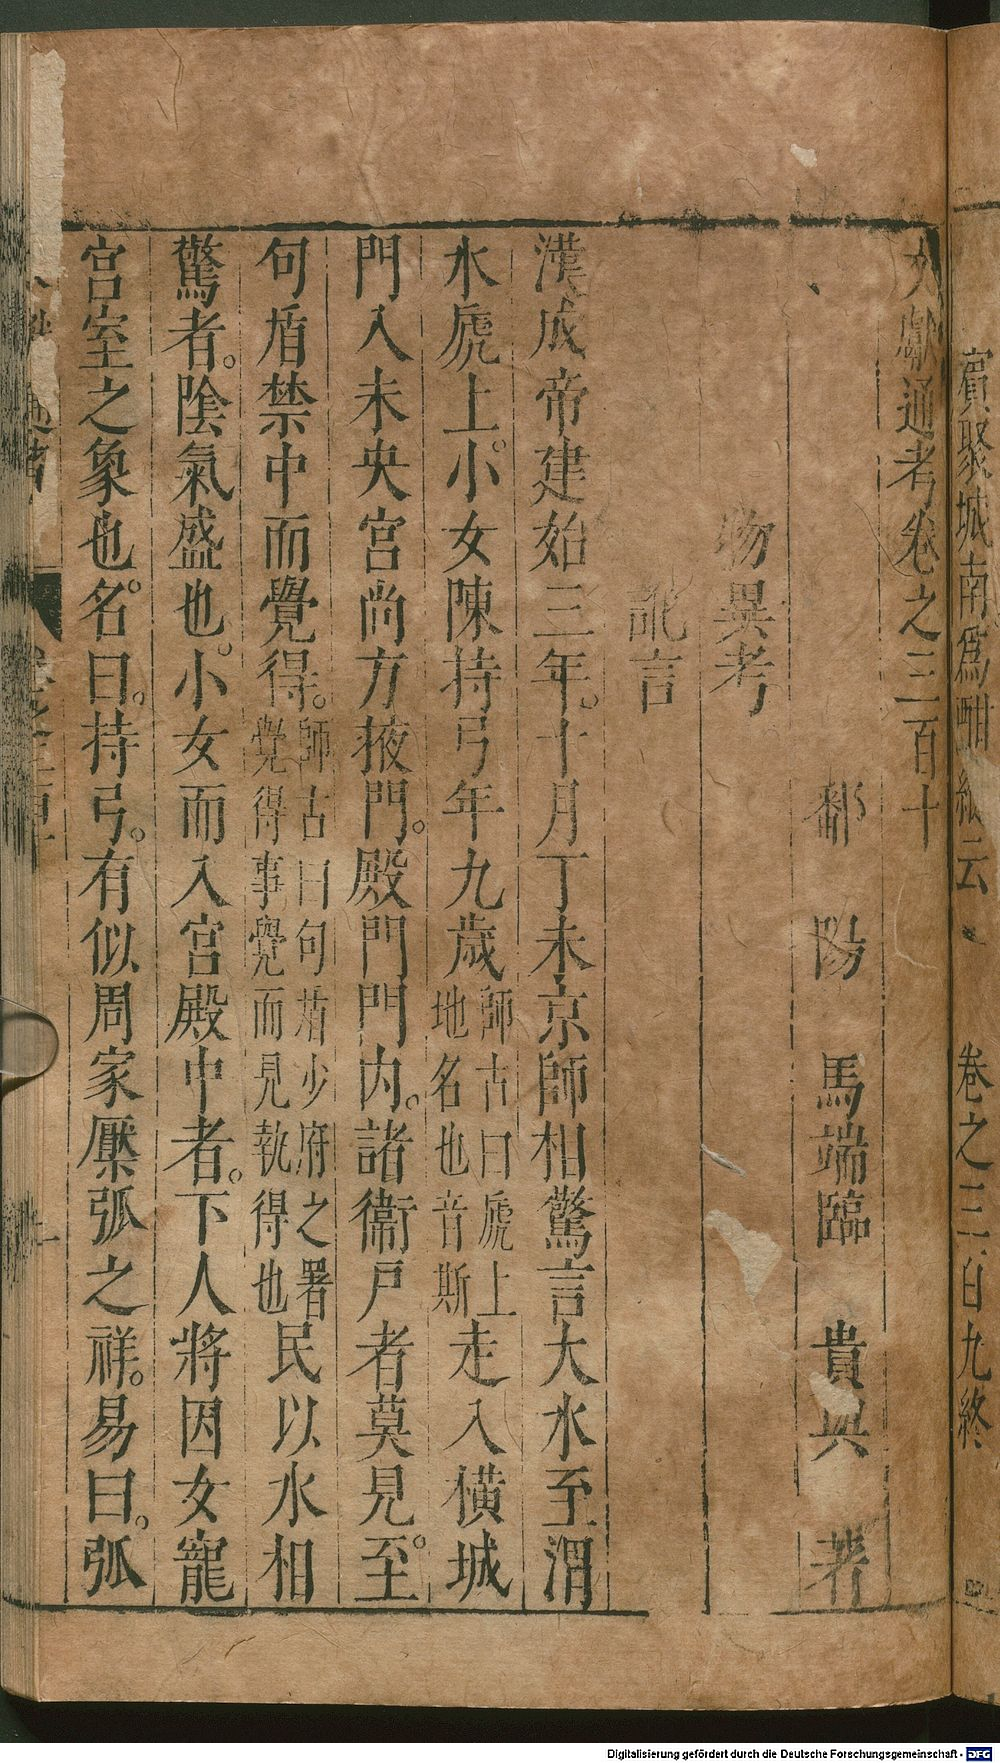 賓聚城南爲酣 云
卷之三百九終
文獻通考卷之三百十
鄱陽馬端臨貴與著
物異考
訛言
漢成帝建始三年。十月丁未京師相驚言大水至渭
水虒上。小女陳持弓年九歲師古曰虒上地名也音斯走入橫城
門入未央宮尚方掖門。殿門門內。諸衞戸者莫見至。
句盾禁中而覺得。師古曰句盾少府之署覺得事覺而見執得也民以水相
驚者。陰氣盛也。小女而入宮殿中者。下人將因女寵
宮室之象也。名曰。持弓。有似周家檿弧之祥。易曰。弧
Digitalisierung gefördert durch die Deutsche Forschungsgemeinschaft - DFG